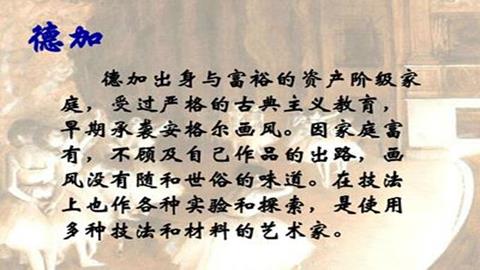 德加
德加出身与富裕的资产阶级家
庭，受过严格的古典主义教育，
早期承袭安格尔画风。因家庭富
有，不顾及自己作品的出路，画
风没有随和世俗的味道。在技法
上也作各种实验和探索，是使用
多种技法和材料的艺术家。